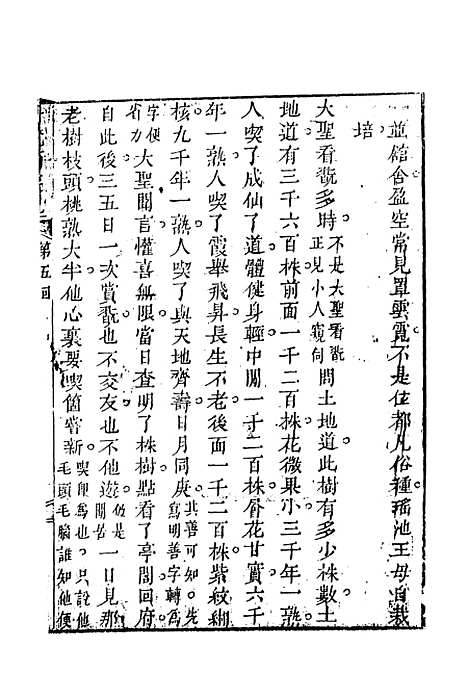 並舘舍盈空常見罩雲霓不是玄都凡俗種瑤池王母自栽
培
大聖看翫多時不是大聖看翫正見小人窺伺問土地道此樹有多少株數土
地道有三千六百株前面一千二百株花微果小三千年一熟
人喫了成仙了道體健身輕中間一千二百株層花甘實六千
年一熟人喫了霞舉飛昇長生不老後面一千二百株紫紋緗
核九千年一熟人喫了與天地齊壽日月同庚其善可知。先寫明善字轉爲
字便省力大聖聞言懽喜無限當日查明了株樹點看了亭閣回府
自此後三五日一次賞翫也不交友也不他遊仍是閒苦一日見那
老樹枝頭桃熟大半他心裏要喫箇嘗新喫酙爲也。只說他毛頭毛腦誰知他便
第五回